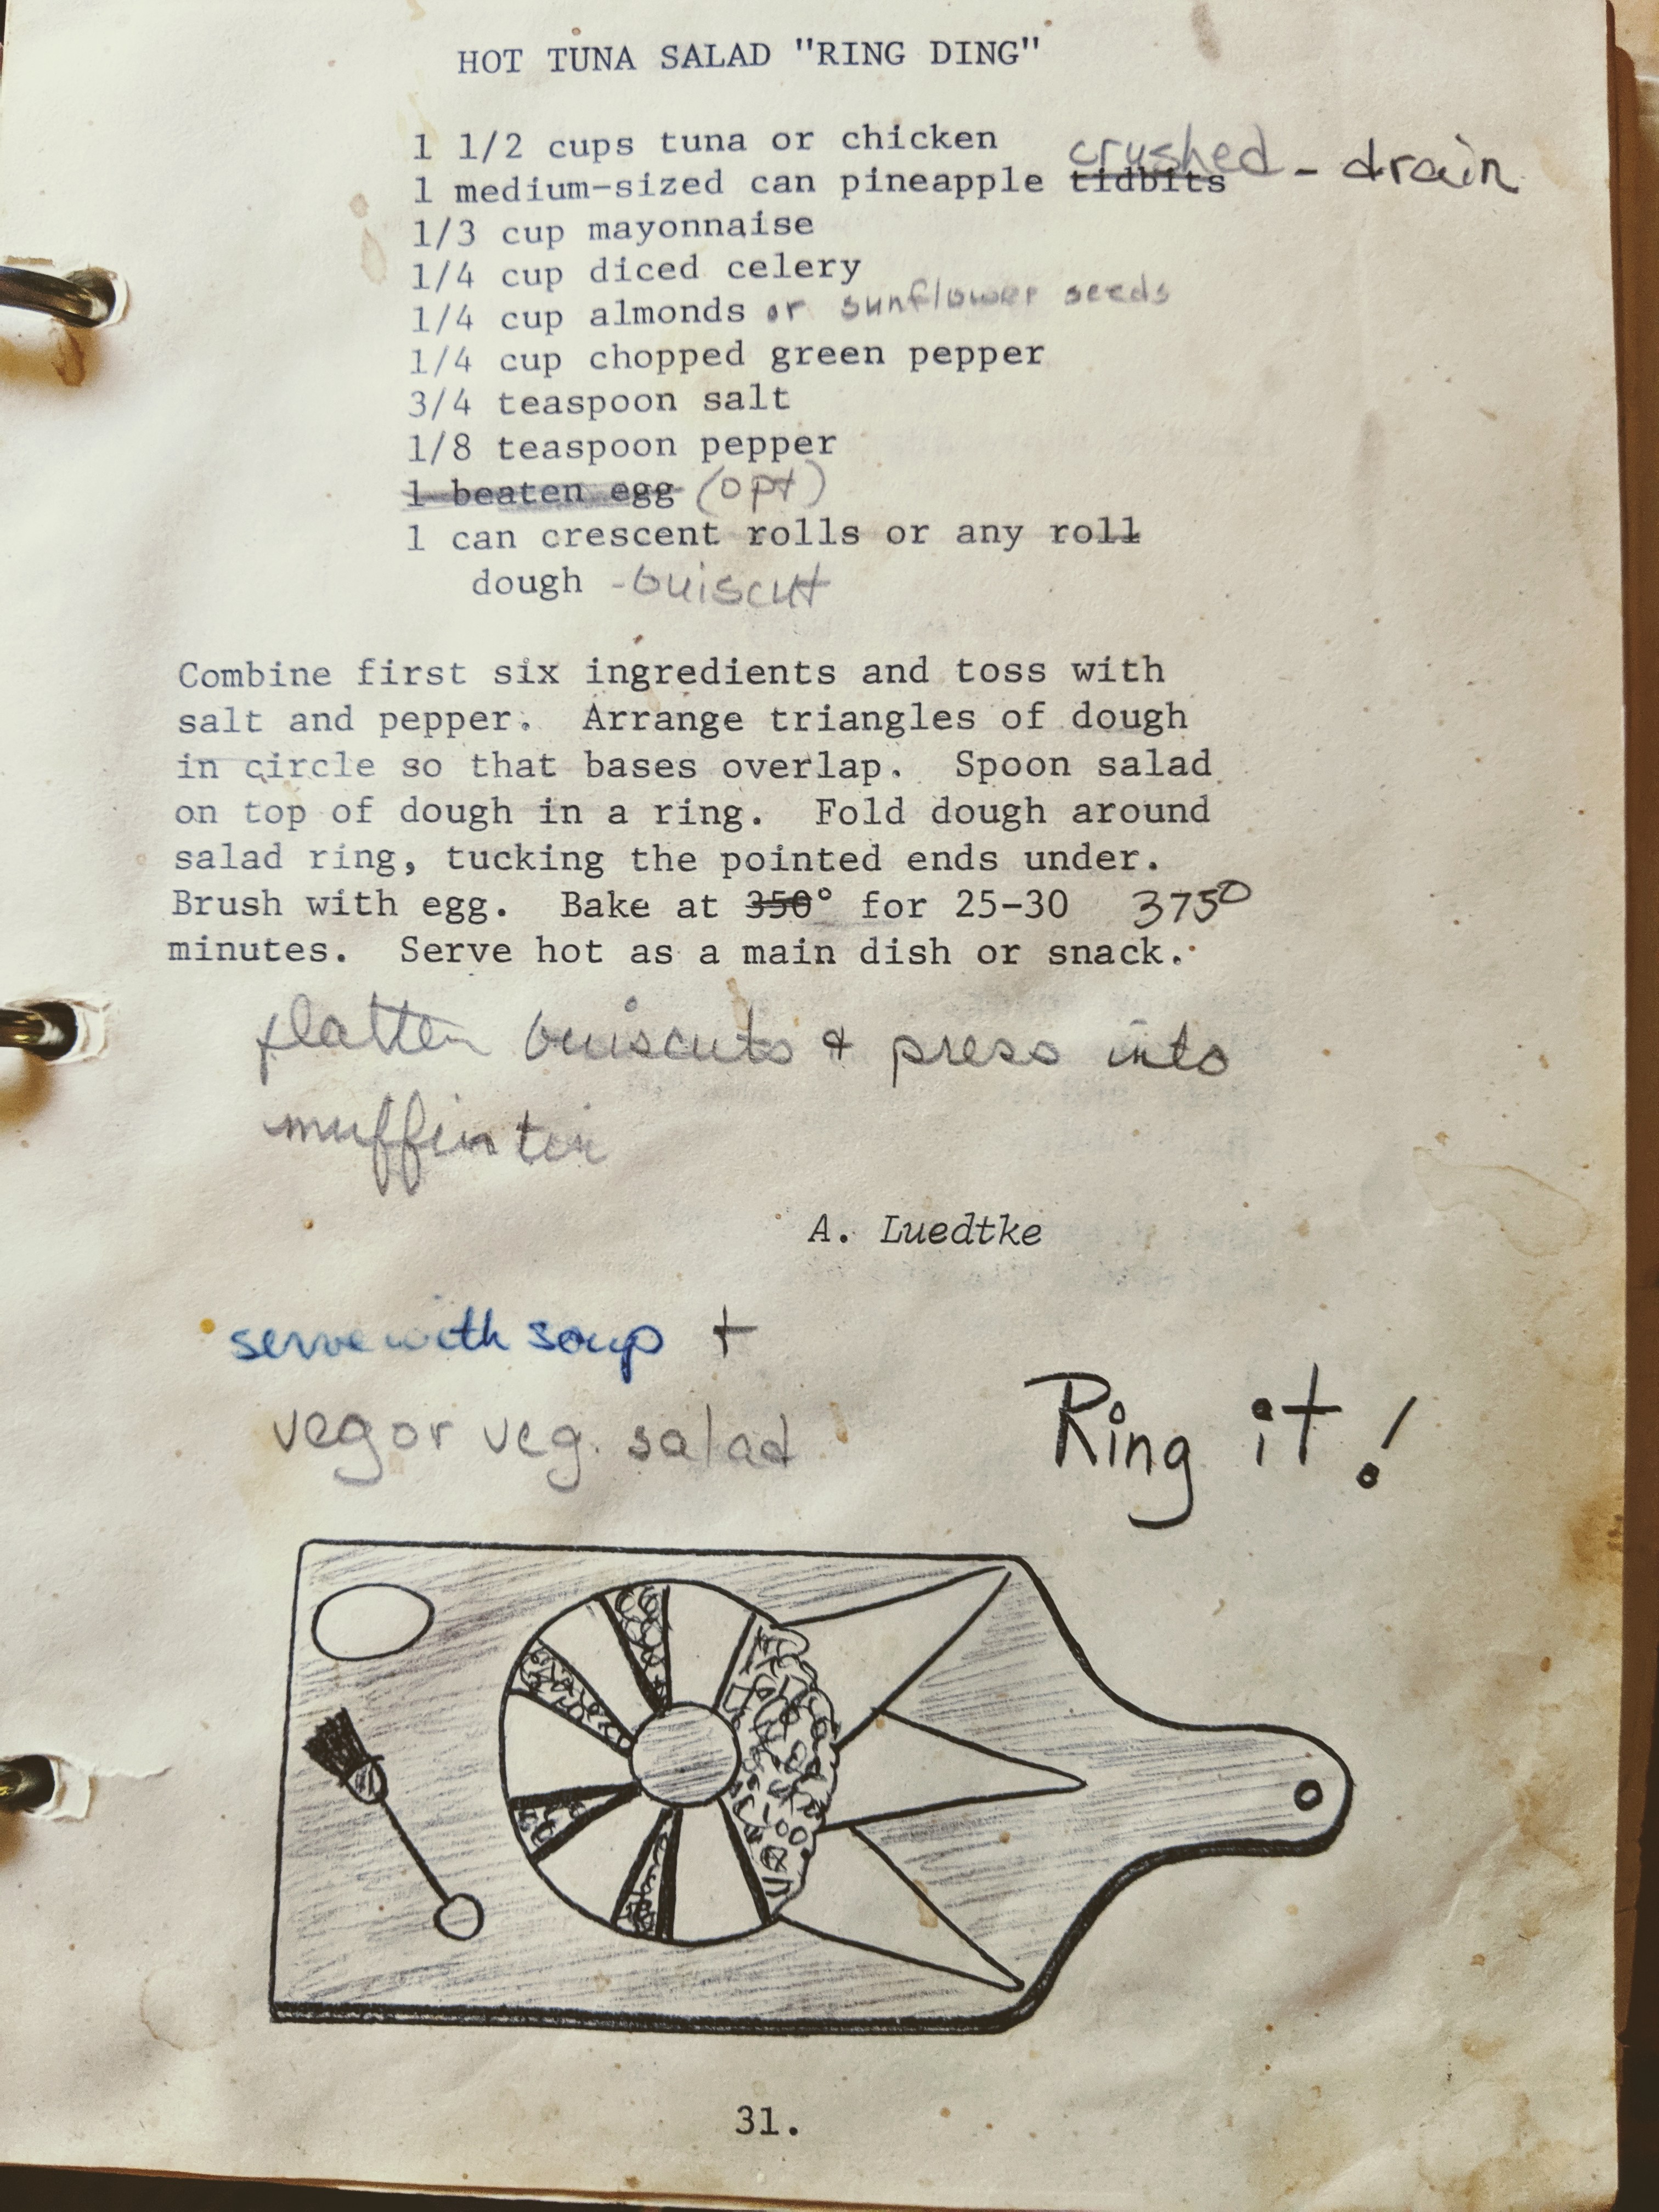 HOT TUNA SALAD "RING DING"
1 1/2 cups tuna or chicken
crushed - drain
1 medium-sized can pineapple tidbits
1/3 cup mayonnaise
1/4 cup diced celery
1/4 cup almonds or sunflower seeds
1/4 cup chopped green pepper
3/4 teaspoon salt
1/8 teaspoon pepper
1 beaten egg (opt)
1 can crescent rolls or any roll
dough -buiscut
Combine first six ingredients and toss with
salt and pepper. Arrange triangles of dough
in circle so that bases overlap. Spoon salad
on top of dough in a ring. Fold dough around
salad ring, tucking the pointed ends under.
Brush with egg. Bake at 350° for 25-30 375°
minutes. Serve hot as a main dish or snack.
flatten buiscuts & press into
muffin tin
A. Luedtke
serve with soup +
veg or veg. salad
Ring it!
31.